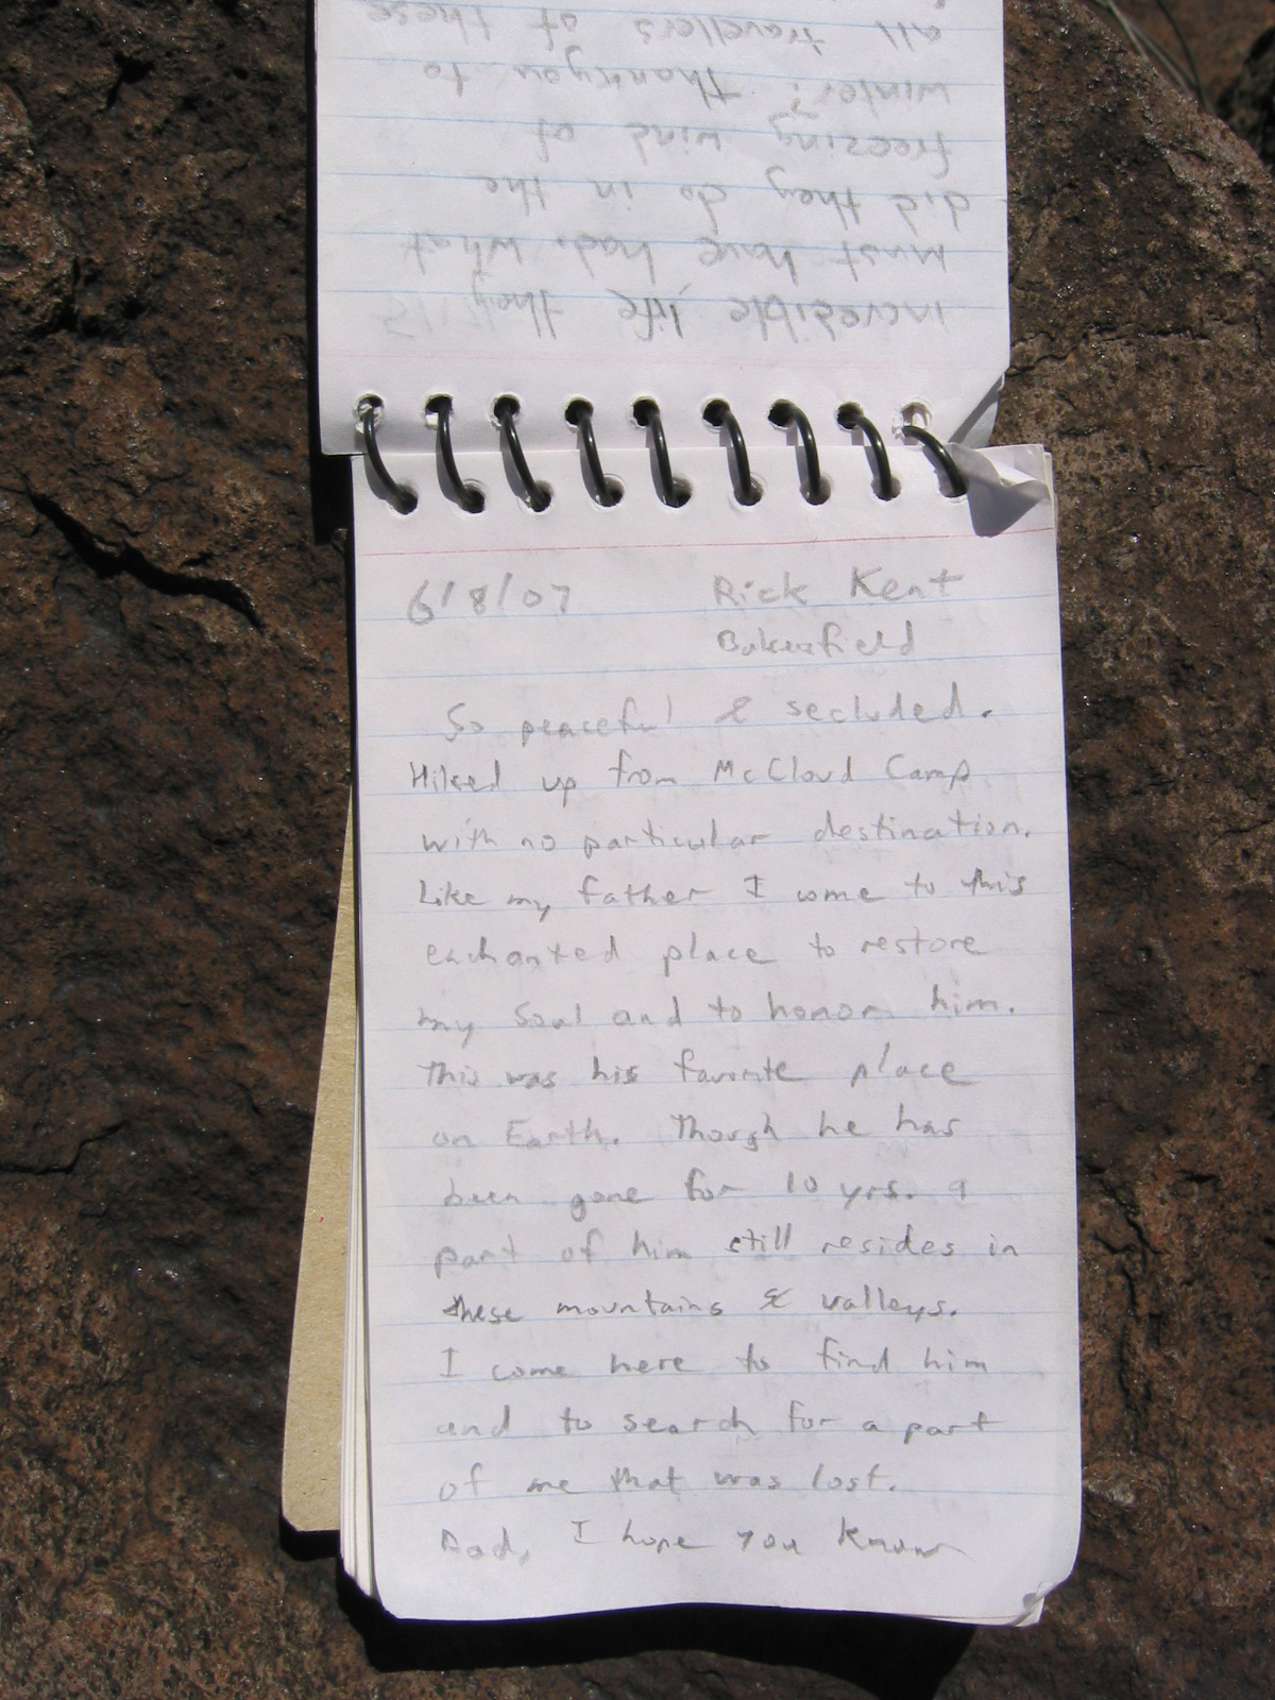 incredible life they
must have had. What
did they do in the
freezing wind of
winter? Thankyou to
all travellers of these
6/8/07 Rick Kent
Bakersfield
So peaceful & secluded.
Hiked up from McCloud Camp
with no particular destination.
Like my father I come to this
enchanted place to restore
my soul and to honor him.
This was his favorite place
on Earth. Though he has
been gone for 10 yrs. a
part of him still resides in
these mountains & valleys.
I come here to find him
and to search for a part
of me that was lost.
Dad, I hope you know